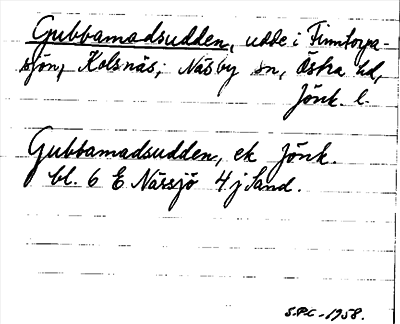 Gubbamadsudden, udde i Finntorpa-
sjön, Kolsnäs, Näsby sn, Östra hd,
Jönk. l.
Gubbamadsudden, ek Jönk.
bl. 6 E Nässjö 4 j Sand.
S.P.C. - 1958.